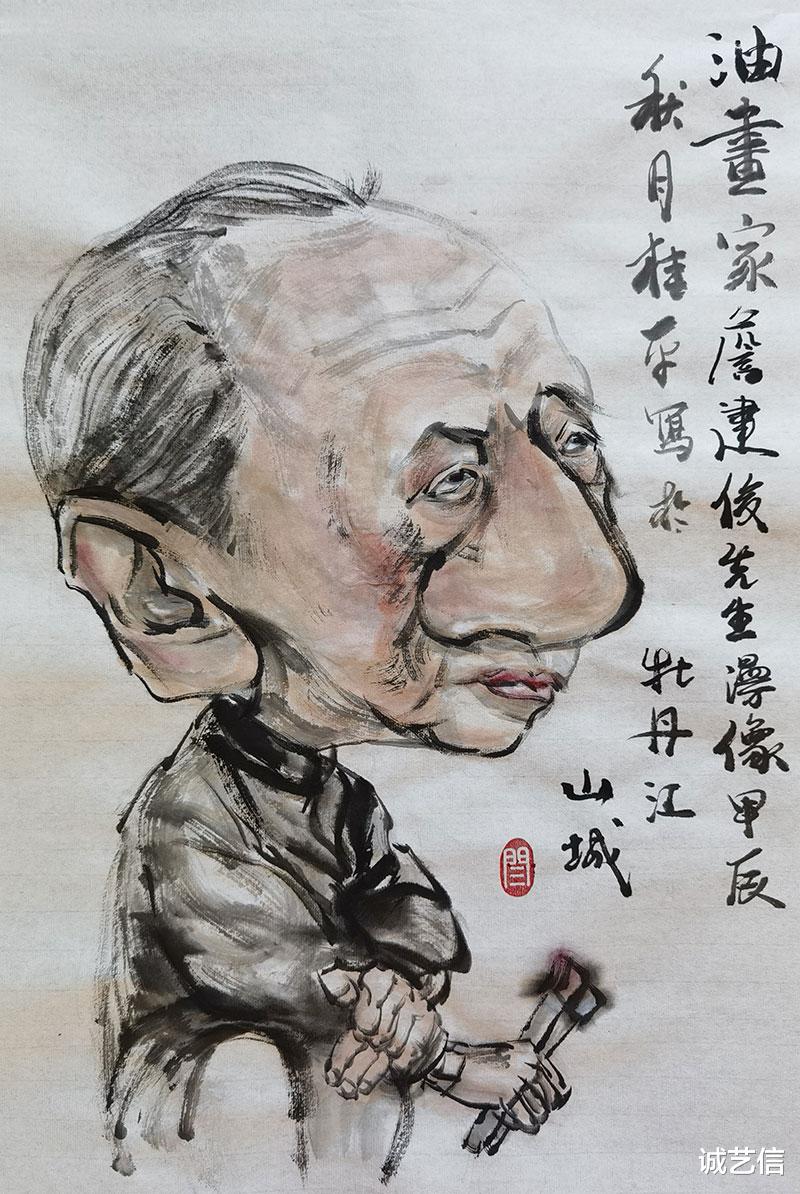 油畫家詹建俊先生漫像甲辰
秋月桂平寫於牡丹江
山城
閆
诚艺信